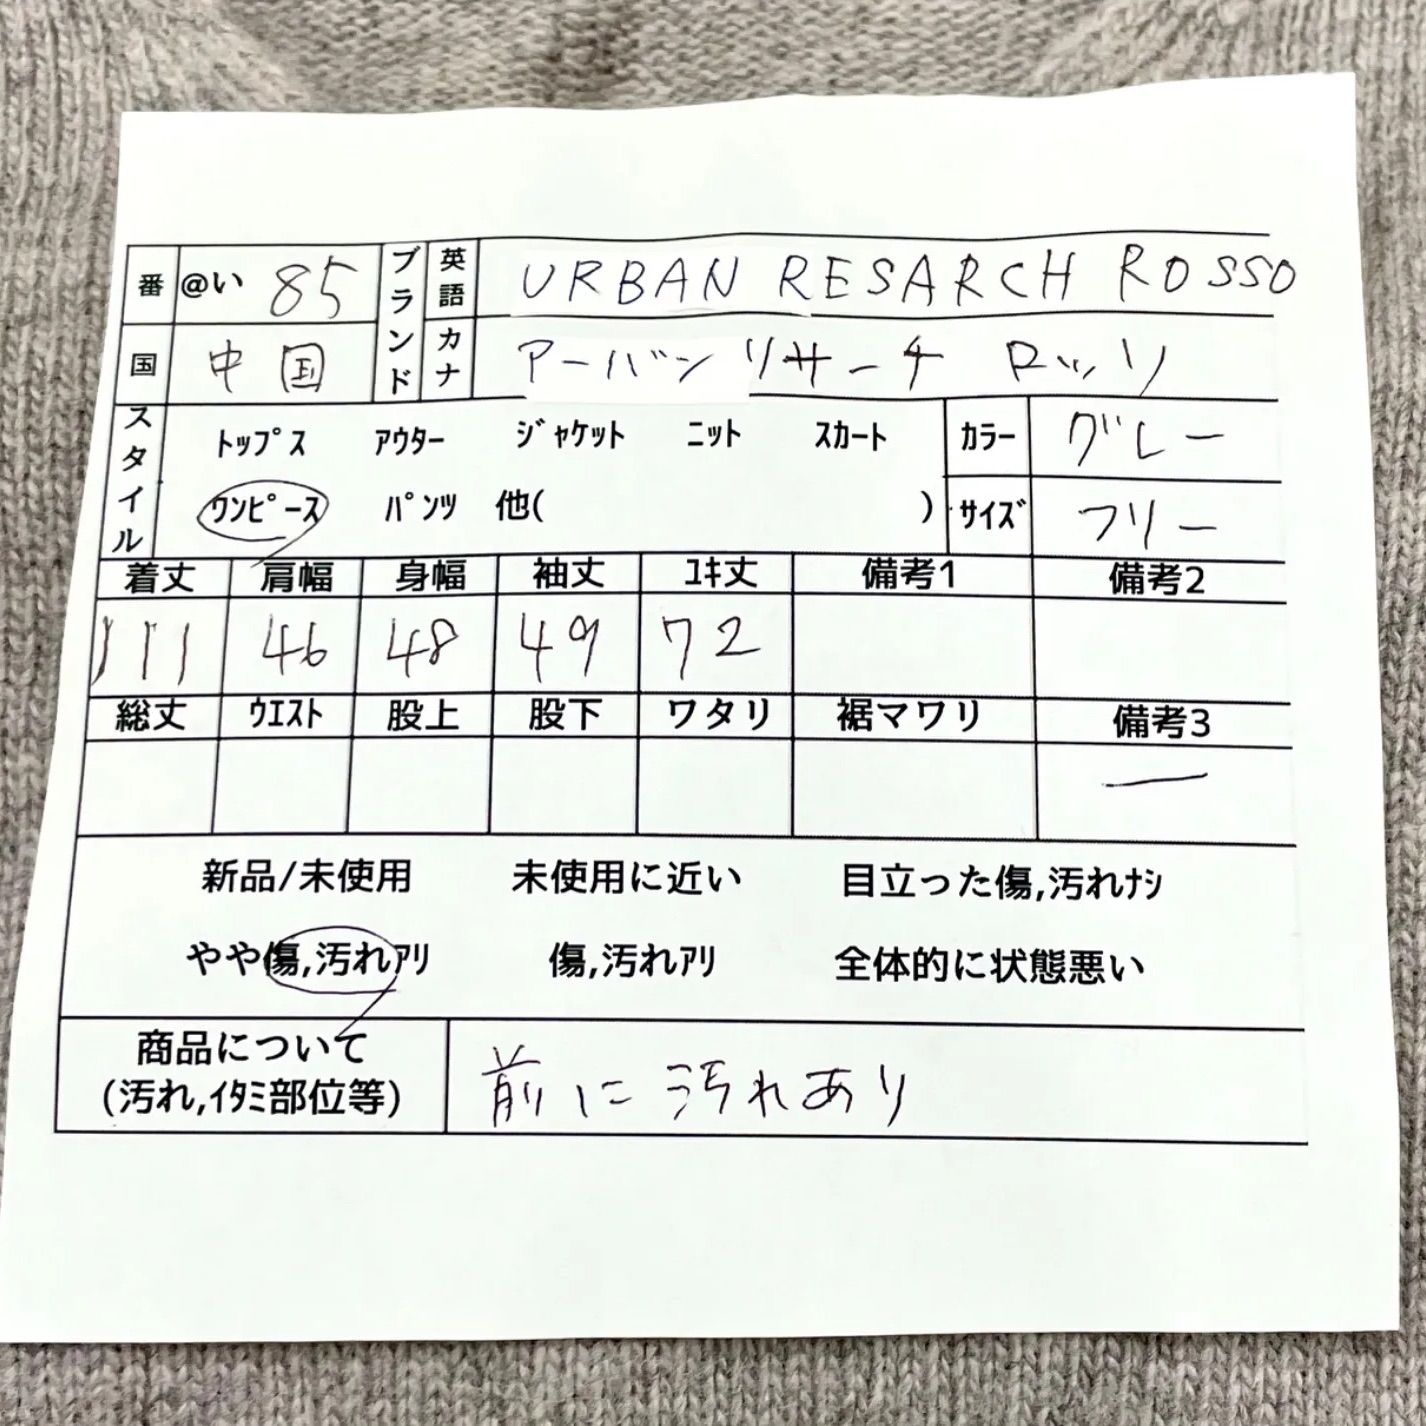 番 @い 85 ブランド 英語 URBAN RESARCH ROSSO
国 中国 カナ アーバンリサーチ ロッソ
スタイル トップス アウター ジャケット ニット スカート カラー グレー
ワンピース パンツ 他( ) サイズ フリー
着丈 肩幅 身幅 袖丈 ユキ丈 備考1 備考2
111 46 48 49 72
総丈 ウエスト 股上 股下 ワタリ 裾マワリ 備考3
ー
新品/未使用 未使用に近い 目立った傷,汚れナシ
やや傷,汚れアリ 傷,汚れアリ 全体的に状態悪い
商品について
(汚れ,イタミ部位等) 前に汚れあり